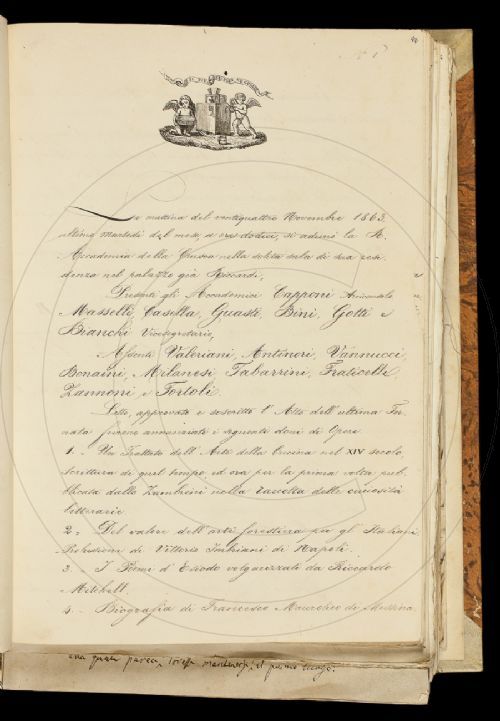 La mattina del ventiquattro Novembre 1863.
ultimo martedì del mese, a ore dodici, si adunò la R.
Accademia della Crusca nella solita sala di sua resi-
denza nel palazzo già Riccardi,
Presenti gli Accademici Capponi Arciconsolo
Masselli, Casella, Guasti, Bini, Gotti e
Bianchi Vicesegretario,
Assenti Valeriani, Antinori, Vannucci
Bonaini, Milanesi Tabarrini, Fraticelli,
Zannoni, e Tortoli.
Letto, approvato e soscritto l'Atto dell'ultima Tor-
nata furono annunziati i seguenti doni di Opere
1. - Un Trattato dell'Arte della Cucina nel XIV secolo,
scrittura di quel tempo, ed ora per la prima volta pub-
blicata dallo Zambrini nella raccolta delle curiosità
letterarie.
2. - Del valore dell'arte forestiera per gl'Italiani
Prolusioni di Vittorio Imbriani di Napoli.
3. - I Poemi d'Esiodo volgarizzati da Riccardo
Mitchell.
4. - Biografia di Francesco Maurolico di Messina